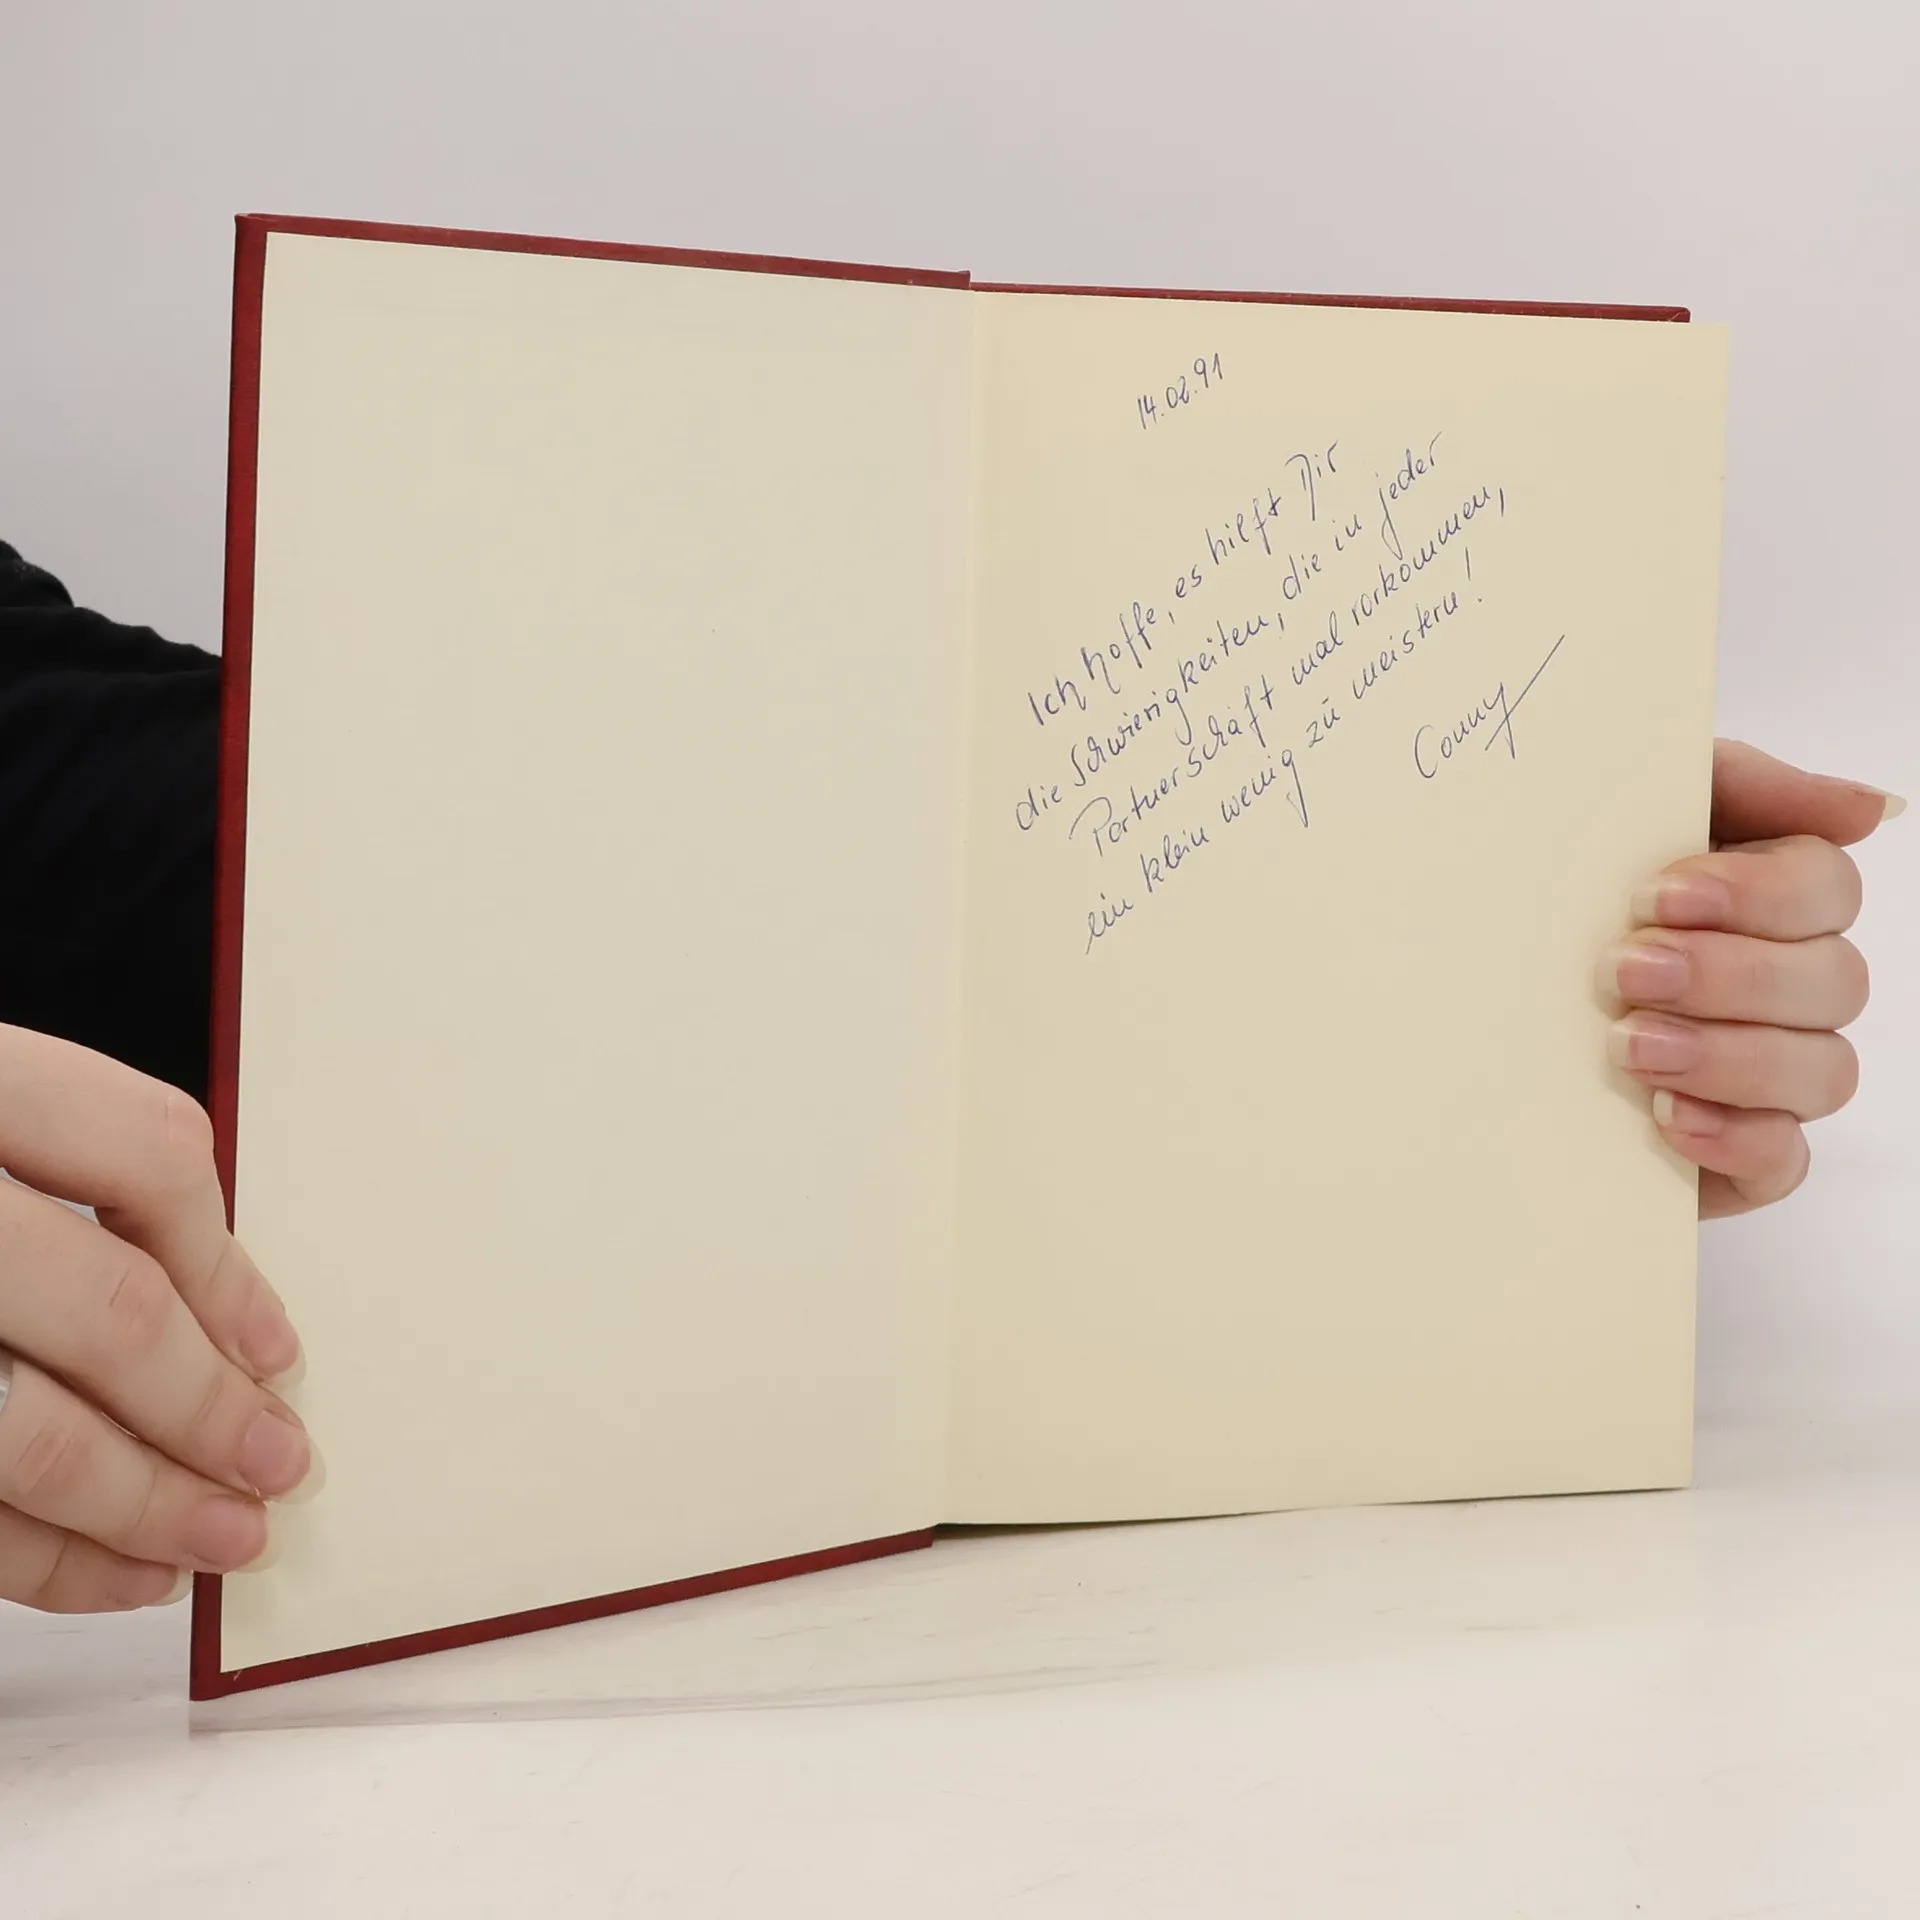 14.02.91
Ich hoffe, es hilft Dir
die Schwierigkeiten, die in jeder
Partnerschaft mal vorkommen,
ein klein wenig zu meistern!
Conny